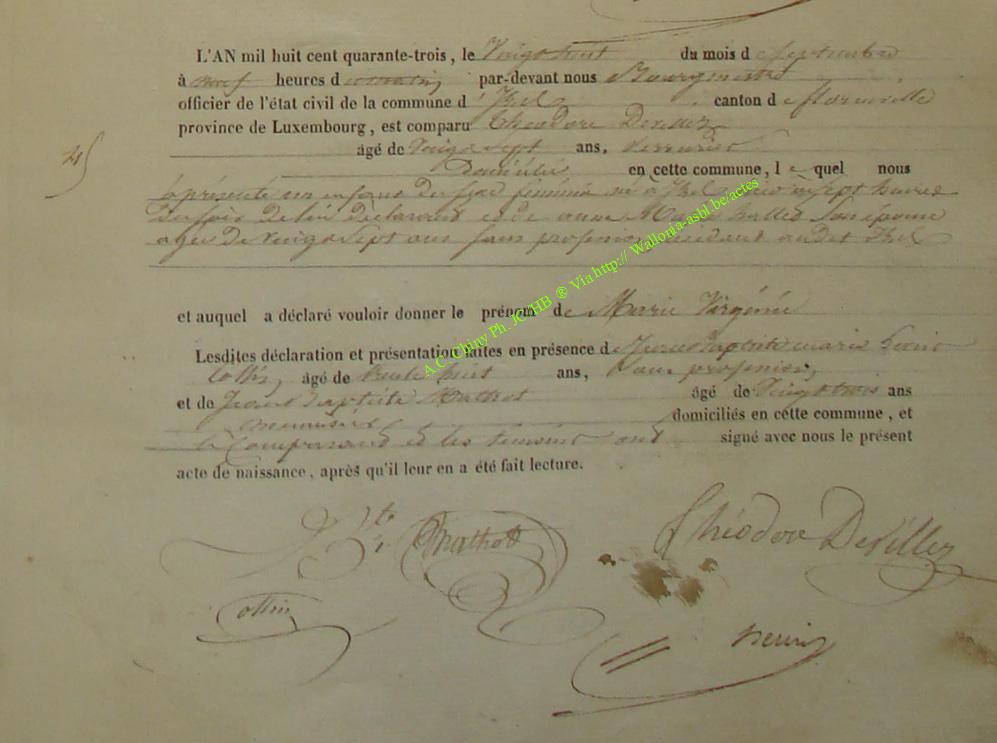 L'AN mil huit cent quarante-trois, le Vingt huit du mois de septembre
à neuf heures du matin, par-devant nous Bourgmestre
officier de l'état civil de la commune d'Izel canton de florenville
province de Luxembourg, est comparu Théodore Devillez
45
âgé de vingt sept ans, serrurier
Domicilié en cette commune, le quel nous
a présenté un enfant du sexe féminin né à Izel à sept heures
du soir de lui Déclarant et de anne Marie son épouse
agée De vingt sept ans sans profession résidant audit Izel
et auquel a déclaré vouloir donner le prénom de Marie Virginie
Lesdites déclaration et présentation faites en présence de Jean Baptiste marie
Collin, âgé de trente huit ans, sans profession,
et de Jean Baptiste Mathot âgé de vingt trois ans
menuisier domiciliés en cette commune, et
le Comparant et les témoins ont signé avec nous le présent
acte de naissance, après qu'il leur en a été fait lecture.
Mathot Théodore DeVillez
Collin
henri
A.C. Chiny Ph. JC.HHB ® Via http:// Wallonia-asbl.be/actes